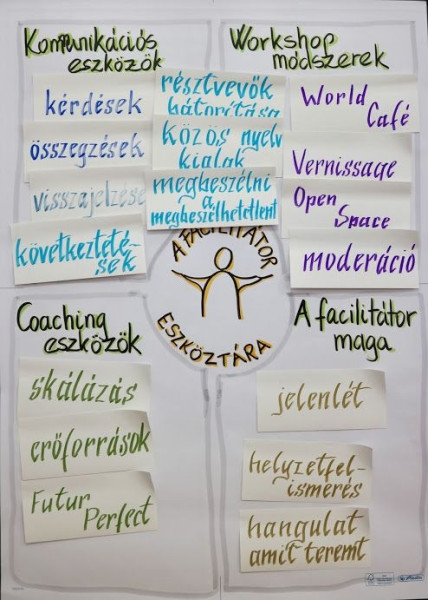 Kommunikációs
eszközök
kérdések
összegzések
visszajelzése
következteté-
sek
résztvevők
bátorítása
közös nyelv
kialak
megbeszélni
a
megbeszélhetetlent
Workshop
módszerek
World
Café
Vernissage
Open
Space
moderáció
A FACILITÁTOR
ESZKÖZTÁRA
Coaching
eszközök
skálázás
erőforrások
Futur
Perfect
A facilitátor
maga
jelenlét
helyzetfel-
ismerés
hangulat
amit teremt